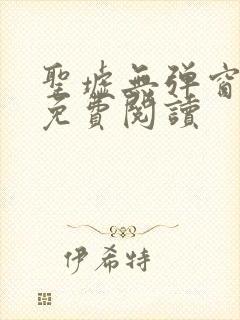 聖墟無彈窗
免費閱讀
伊希特